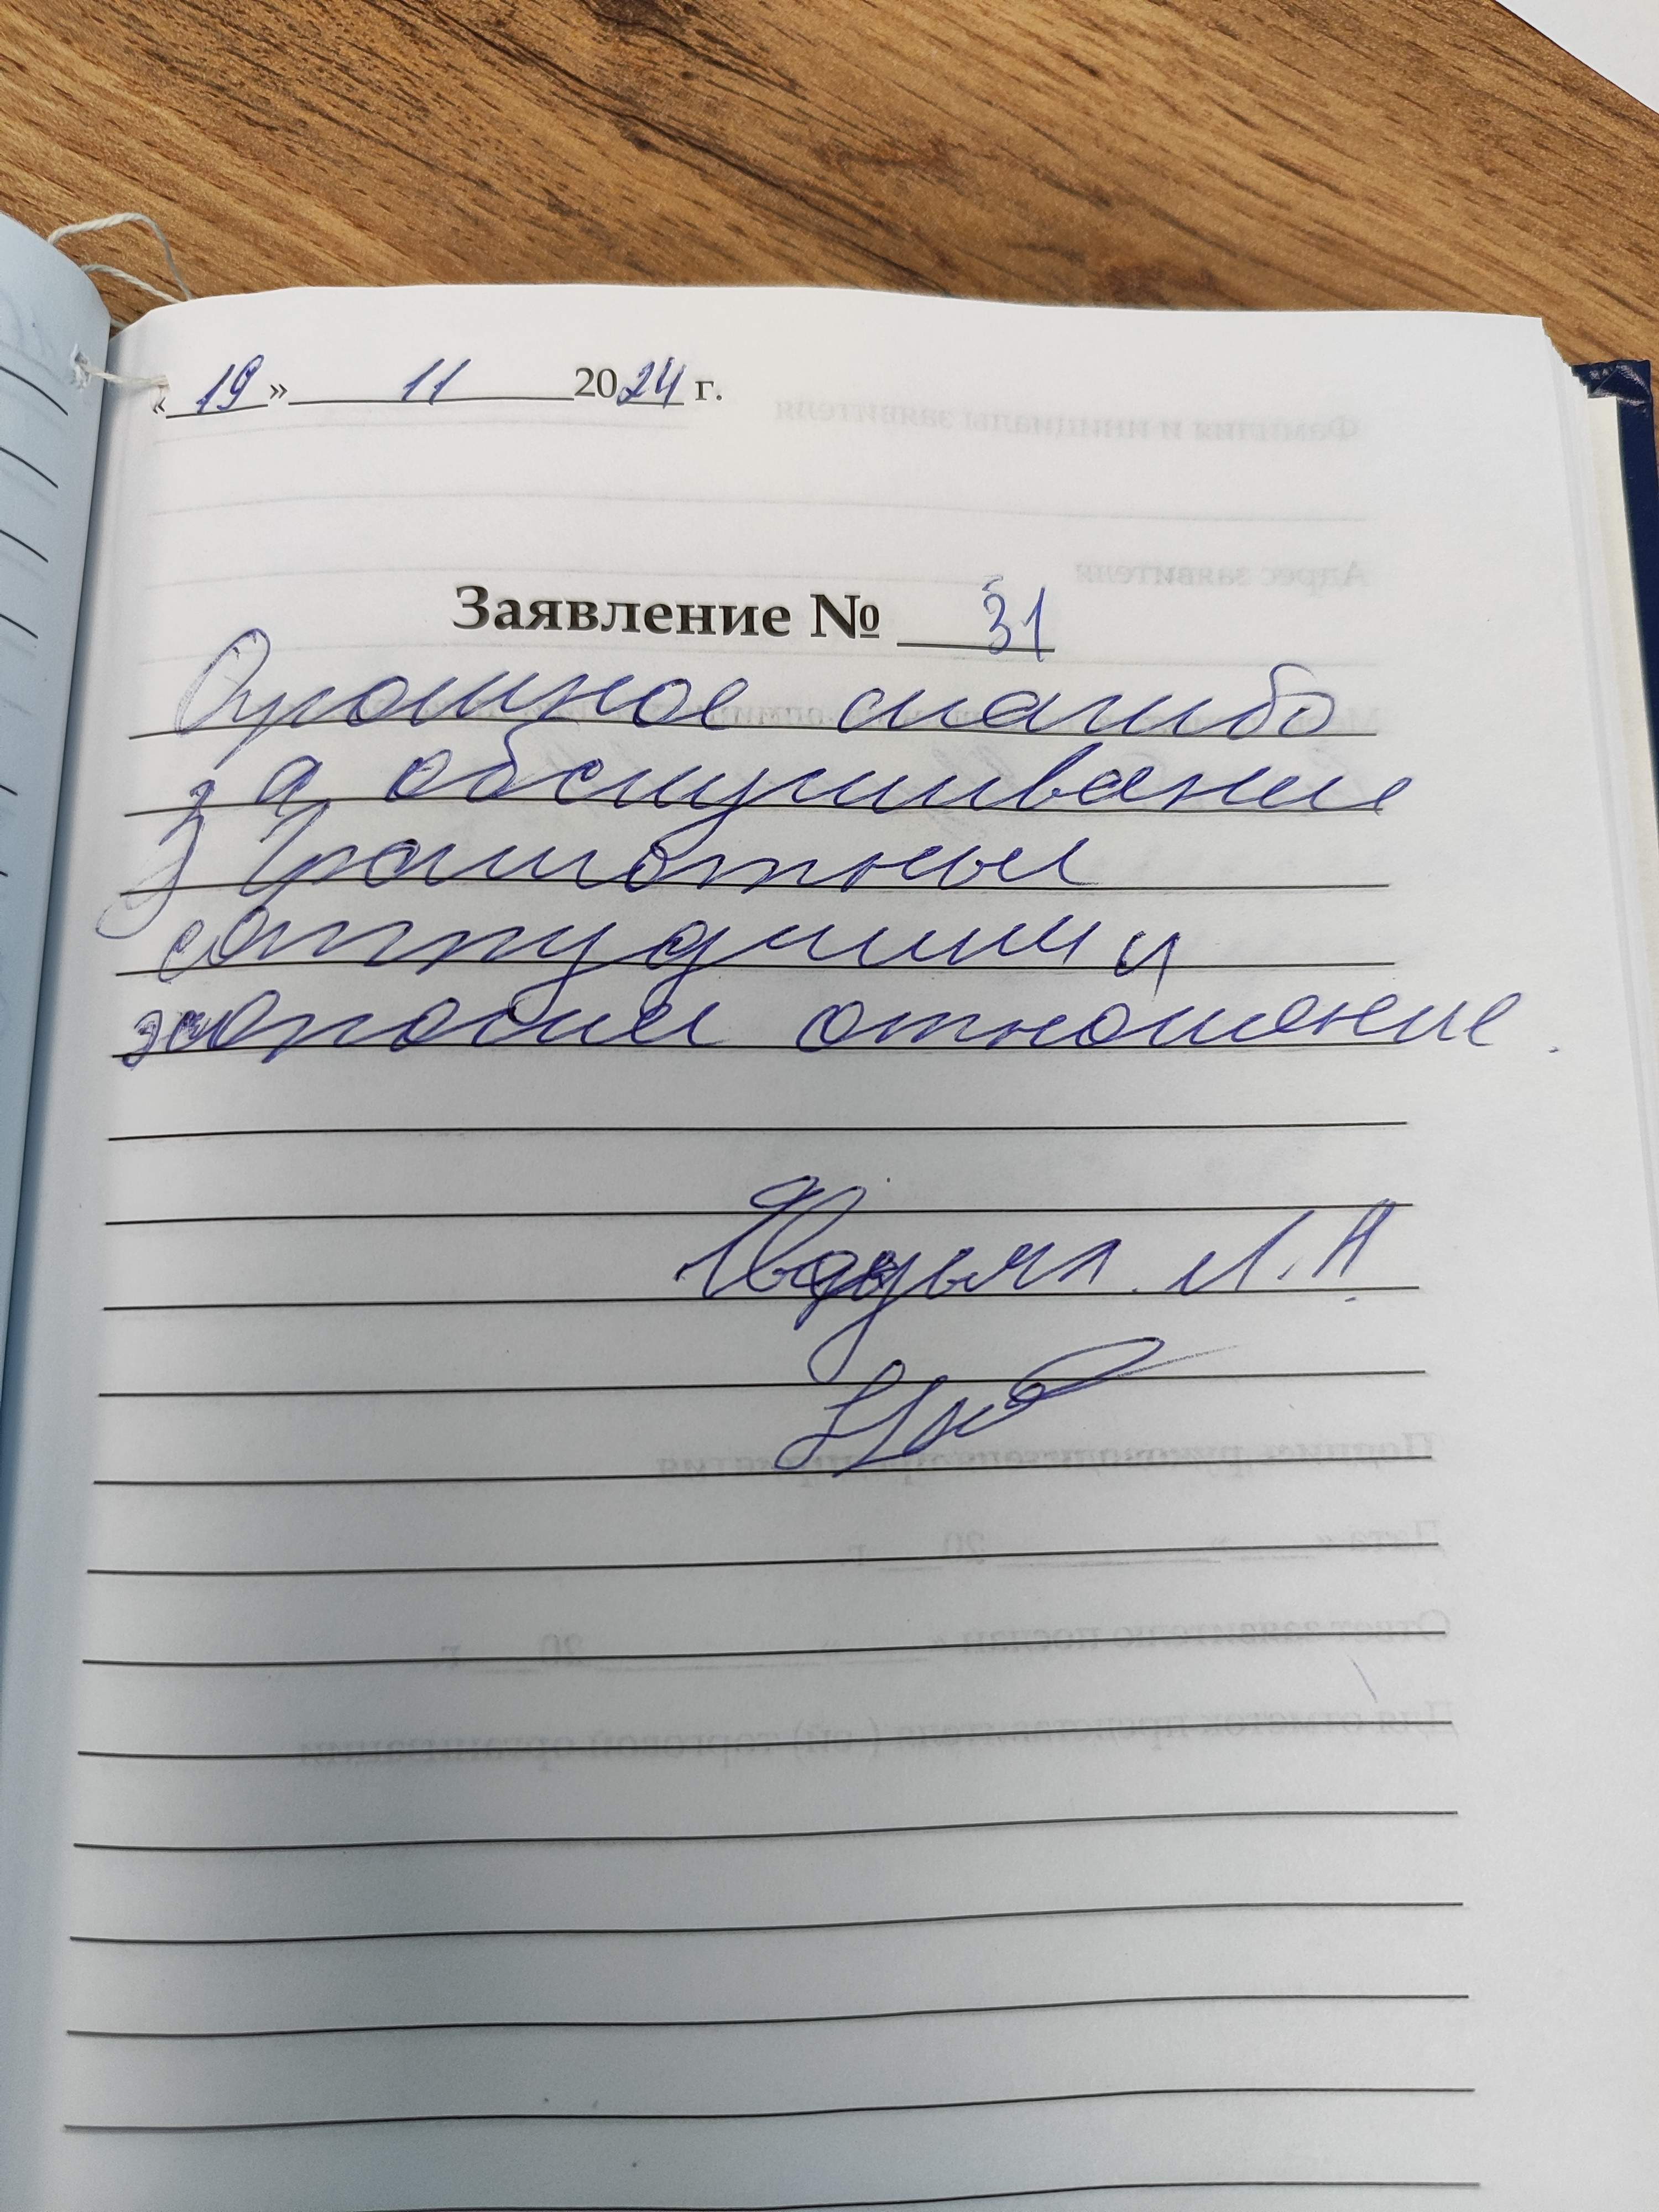 « 19 » 11 2024 г.
Заявление № 31
Огромное спасибо
за обслуживание
Грамотные
сотрудники и
хорошее отношение.
Л.Н